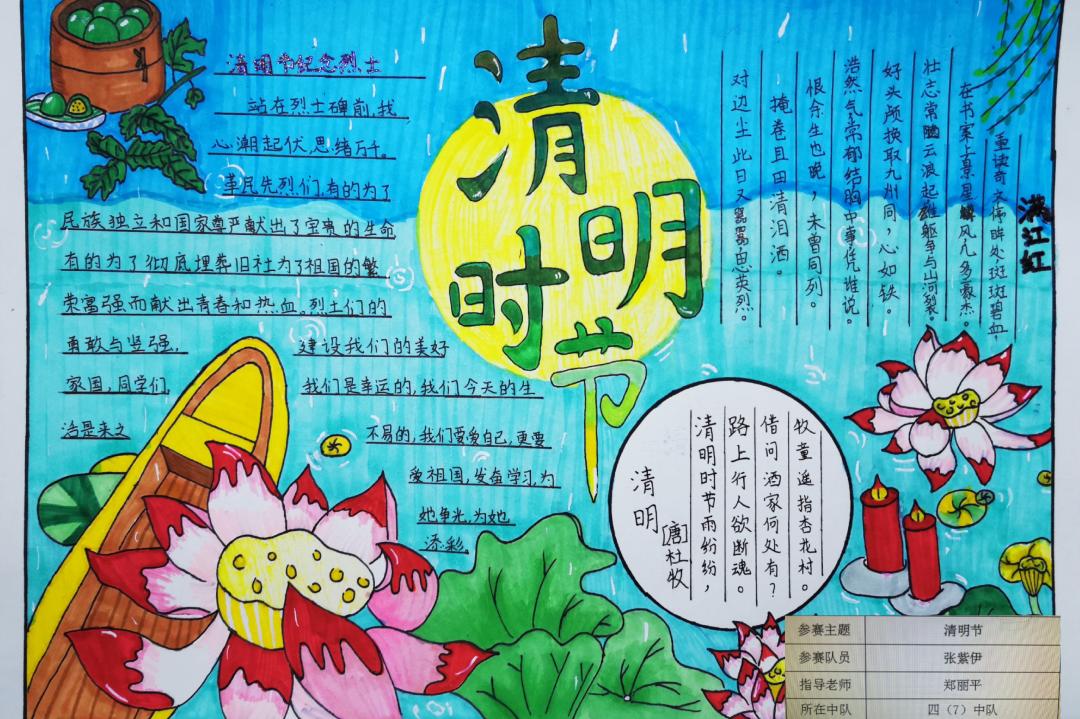 清明时节
清明节纪念烈士
站在烈士碑前,我
心潮起伏,思绪万千。
革民先烈们,有的为了
民族独立和国家尊严献出了宝贵的生命
有的为了彻底埋葬旧社为了祖国的繁
荣富强而献出青春和热血。烈士们的
勇敢与竖强, 建设我们的美好
家国,同学们, 我们是幸运的,我们今天的生
活是来之 不易的,我们要爱自己,更要
爱祖国,发奋学习,为
她争光,为她
添彩。
满江红
重读奇 停眸处斑斑碧血,
在书案上景星 风几多豪杰。
壮志常 云浪起雄躯争与山河裂。
好头颅换取九州同,心如铁。
浩然气常郁结胸中事凭谁说。
恨余生也晚,未曾同列。
掩卷且田清泪洒。
对边尘此日又嚣嚣,思英烈。
牧童遥指杏花村。
借问酒家何处有?
路上行人欲断魂。
清明时节雨纷纷,
[唐]杜牧
清明
参赛主题 清明节
参赛队员 张紫伊
指导老师 郑丽平
所在中队 四(7)中队